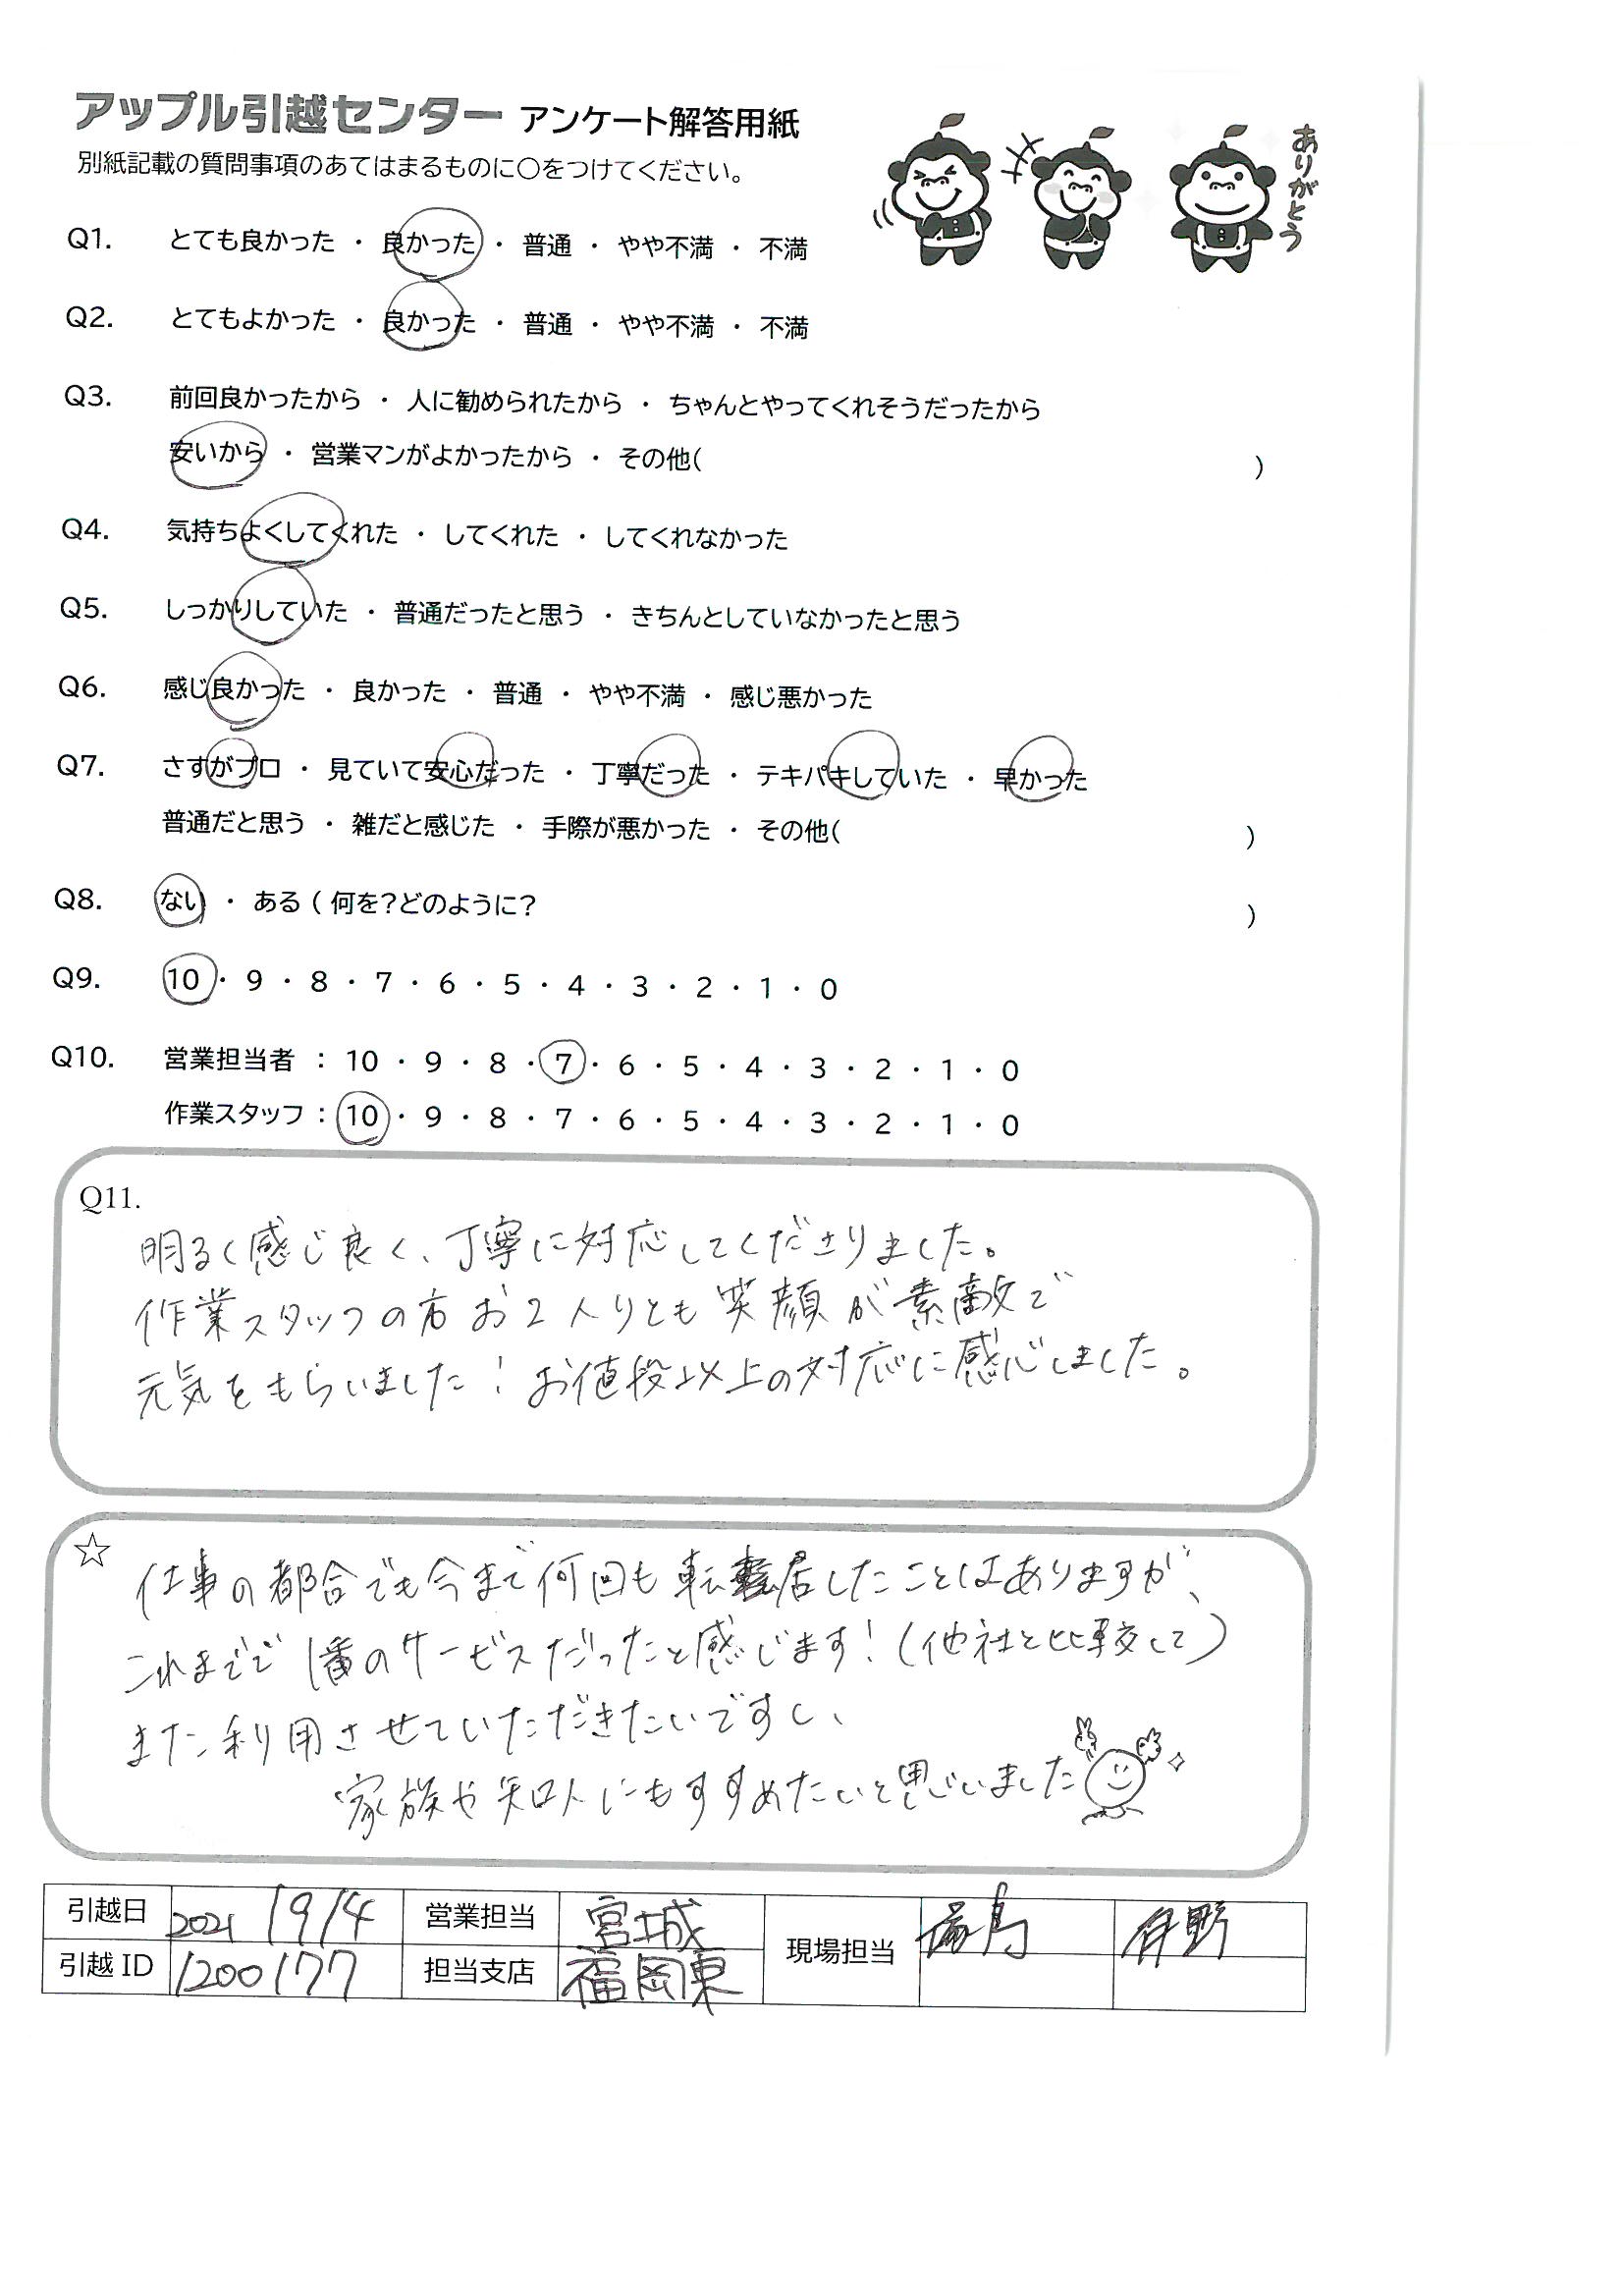 アップル引越センター アンケート解答用紙
別紙記載の質問事項のあてはまるものに○をつけてください。
ありがとう
Q1. とても良かった ・ 良かった ・ 普通 ・ やや不満 ・ 不満
Q2. とてもよかった ・ 良かった ・ 普通 ・ やや不満 ・ 不満
Q3. 前回良かったから ・ 人に勧められたから ・ ちゃんとやってくれそうだったから
安いから ・ 営業マンがよかったから ・ その他( )
Q4. 気持ちよくしてくれた ・ してくれた ・ してくれなかった
Q5. しっかりしていた ・ 普通だったと思う ・ きちんとしていなかったと思う
Q6. 感じ良かった ・ 良かった ・ 普通 ・ やや不満 ・ 感じ悪かった
Q7. さすがプロ ・ 見ていて安心だった ・ 丁寧だった ・ テキパキしていた ・ 早かった
普通だと思う ・ 雑だと感じた ・ 手際が悪かった ・ その他( )
Q8. ない ・ ある ( 何を?どのように? )
Q9. 10 ・ 9 ・ 8 ・ 7 ・ 6 ・ 5 ・ 4 ・ 3 ・ 2 ・ 1 ・ 0
Q10. 営業担当者 : 10 ・ 9 ・ 8 ・ 7 ・ 6 ・ 5 ・ 4 ・ 3 ・ 2 ・ 1 ・ 0
作業スタッフ : 10 ・ 9 ・ 8 ・ 7 ・ 6 ・ 5 ・ 4 ・ 3 ・ 2 ・ 1 ・ 0
Q11.
明るく感じ良く、丁寧に対応してくださりました。
作業スタッフの方お2人りとも笑顔が素敵で
元気をもらいました!お値段以上の対応に感心しました。
☆
仕事の都合でも今まで何回も転居したことはありますが、
これまでで1番のサービスだったと感じます!(他社と比較して)
また利用させていただきたいですし、
家族や知人にもすすめたいと思いました
引越日 2021/9/4 営業担当 宮城 現場担当 伊野
引越ID 1200177 担当支店 福岡東